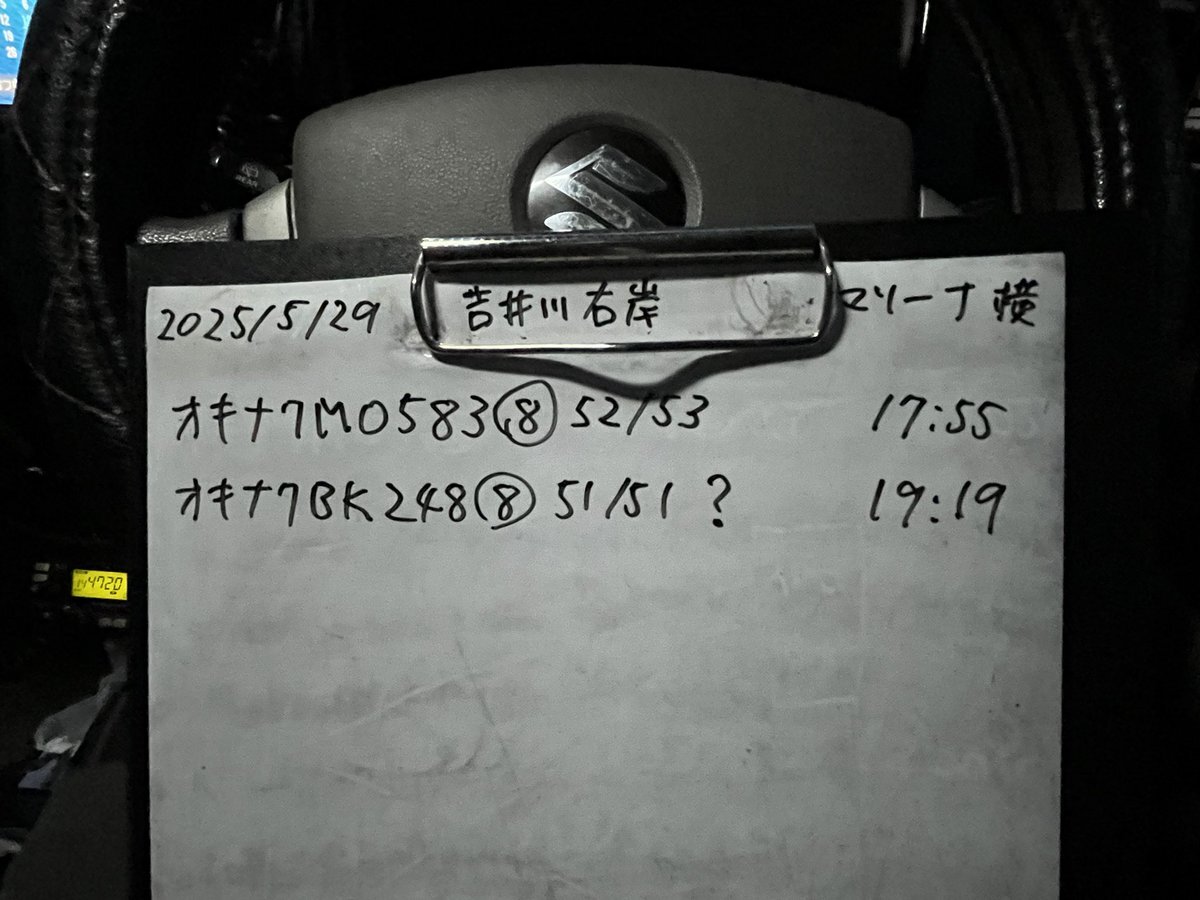 2025/5/29 吉井川右岸 マリーナ横
オキナワMO583⑧ 52/53 17:55
オキナワBK248⑧ 51/51 ? 19:19
4720